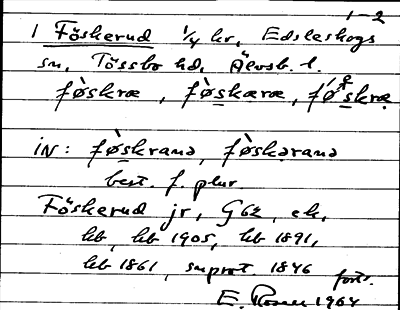 1-2
1 Föskerud 1/4 hr, Edsleskogs
sn, Tössbo hd, Älvsb. l.
fø̀skræ, fø̀skæræ, fø̀skræ
iN: fø̀skranə, fø̀skəranə
best. f. plur.
Föskerud jr, G62, ek,
kb, kb 1905, kb 1891,
kb 1861, suprot. 1846 forts.
E. Rosen 1964